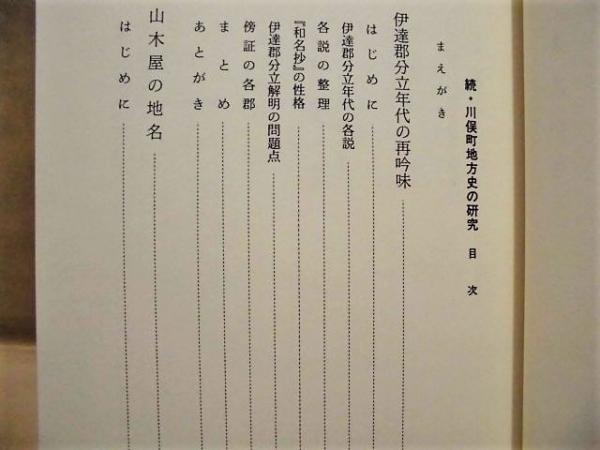 続・川俣町地方史の研究 目次
まえがき
伊達郡分立年代の再吟味
はじめに
伊達郡分立年代の各説
各説の整理
『和名抄』の性格
伊達郡分立解明の問題点
傍証の各郡
まとめ
あとがき
山木屋の地名
はじめに